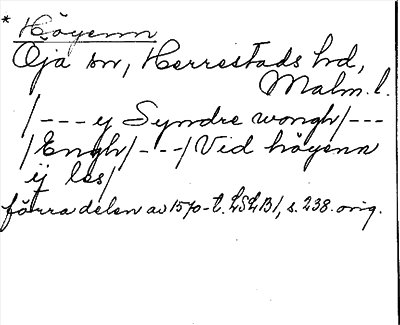 * Höyenn
Öja sn, Herrestads hd,
Malm. l.
/--- ij Syndre wongh/---
/Engh/---/Vid höyenn
ij les/
förra delen av 1570-t. LSLB1, s. 238. orig.